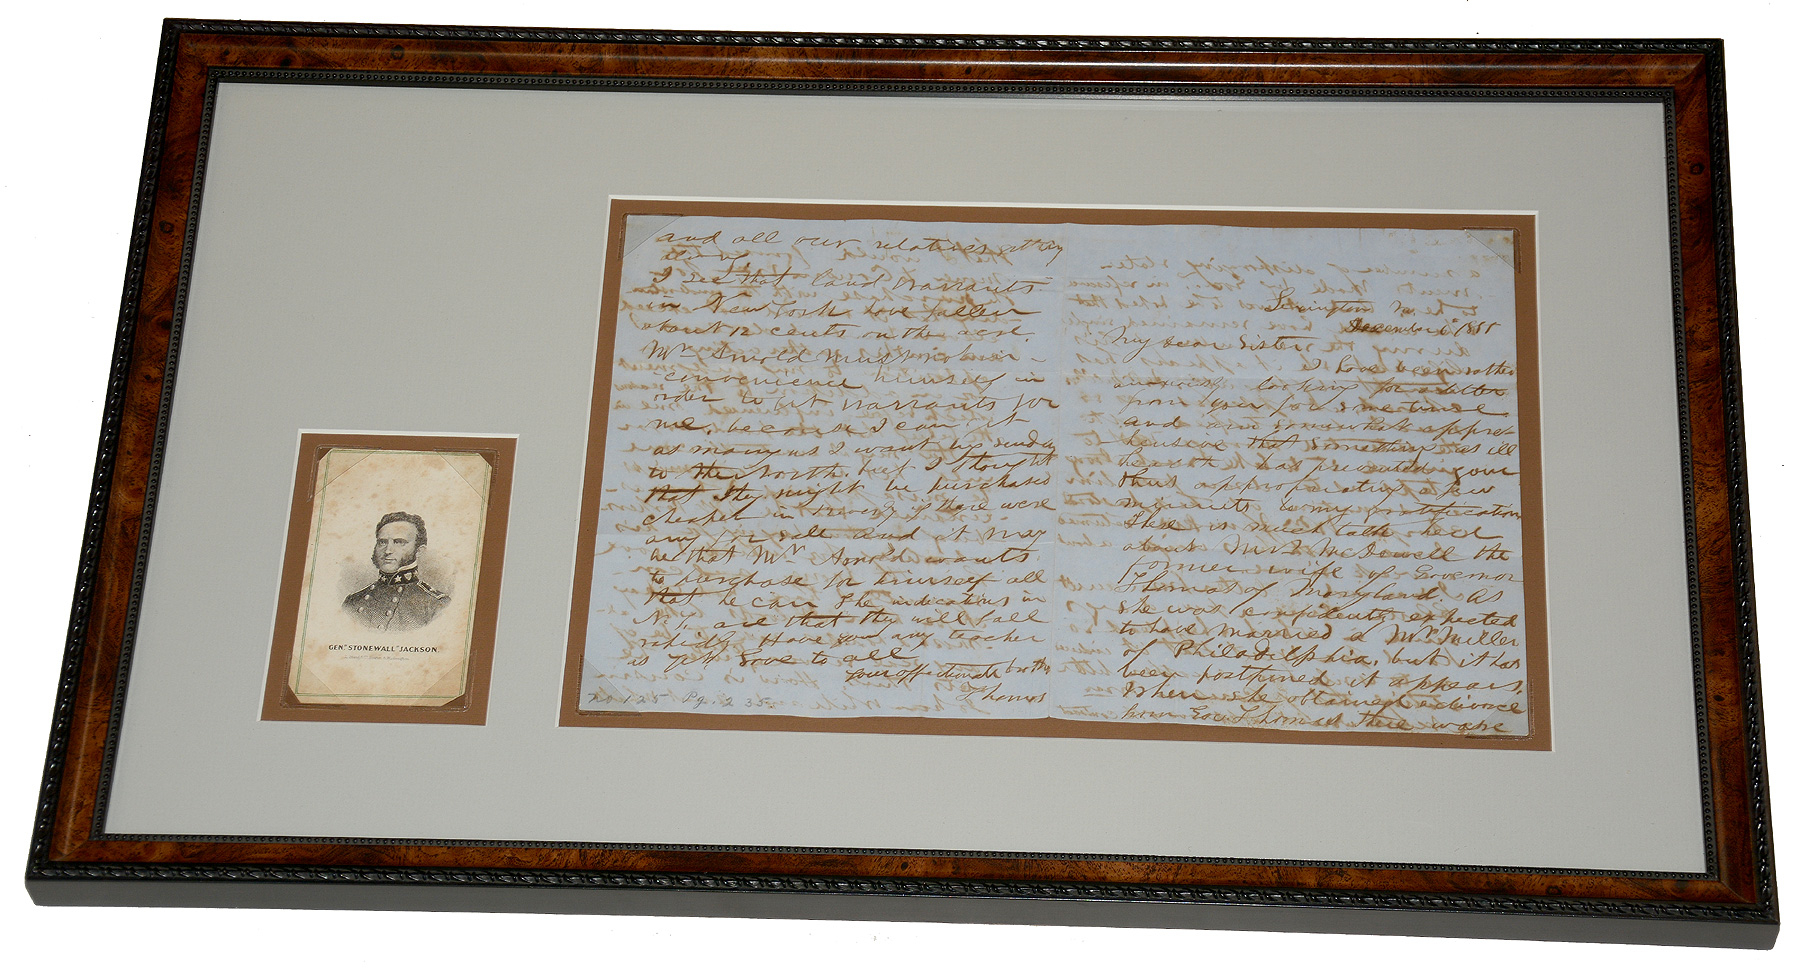 GENL. "STONEWALL" JACKSON.
and all our relatives at
I see that Land Warrants
in New York have fallen
about 12 cents on the acre.
Mr Arnold must not in-
convenience himself in
order to get warrants for
me, because I can get
as many as I want by sending
to the North, but I thought
that they might be purchased
cheaper in if there were
any for sale and it may
be that Mr Arnold wants
to purchase for himself all
that he can The indications in
N.Y. are that they will fall
rapidly. Have you any teacher
is yet Love to all
Your affectionate brother
Thomas
no. 125 Pg. 2 35
Lexington Va
December 6th 1855
My dear Sister
I have been rather
anxiously looking for a letter
from you for some time
and am somewhat appre-
hensive that something as ill
health has prevented your
thus appropriating a few
moments to my gratification
There is much talk here
about Mrs McDowell the
former wife of Governor
Thomas of Maryland. As
she was confidently expected
to have married a Mr Miller
of Philadelphia, but it has
been postponed it appears.
When she obtained a divorce
from Gov. Thomas there were